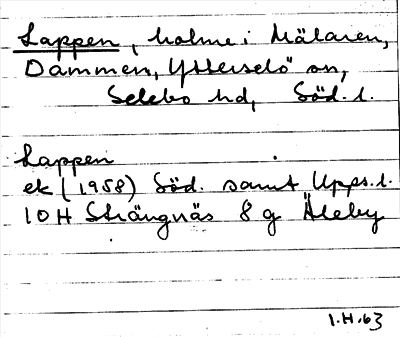 Lappen, holme i Mälaren,
Dammen, Ytterselö sn,
Selebo hd, Söd. l.
Lappen
ek (1958) Söd. samt Upps. l.
10H Strängnäs 8 g Åleby
I.H.63